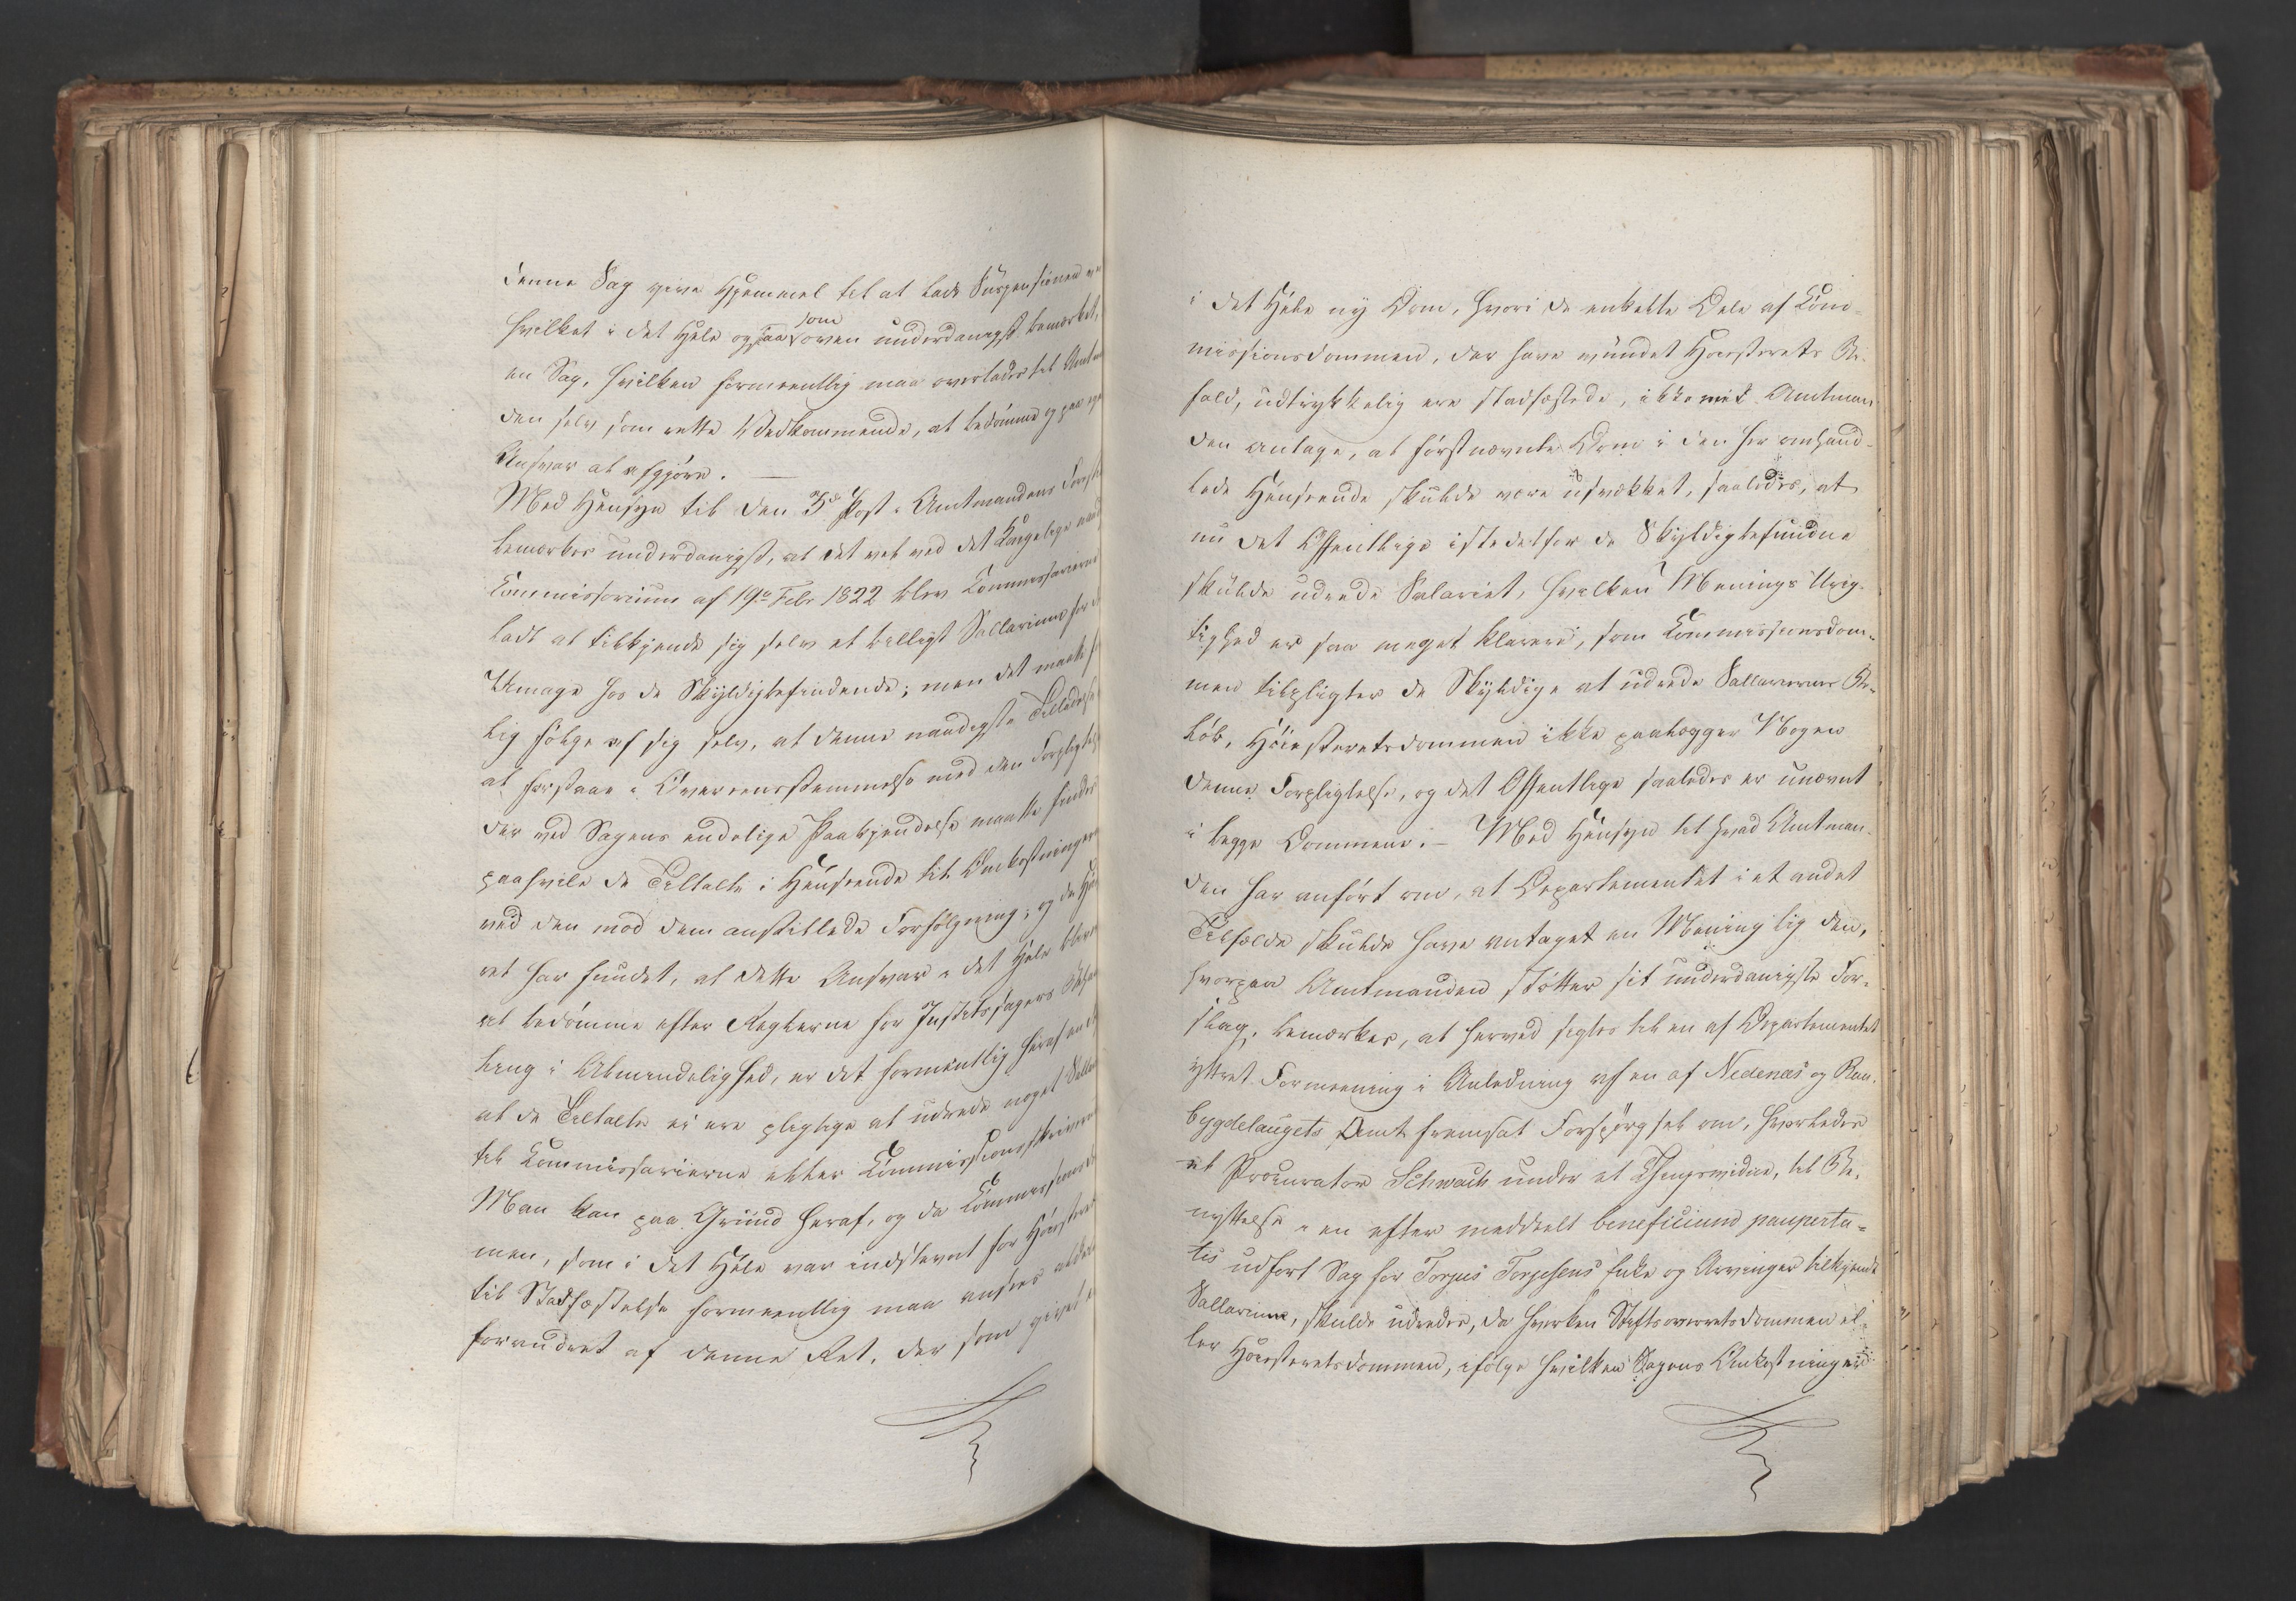 denne Sag give Hjemmel til at lade Suspensionen
hvilket i det Hele ogsaa som oven underdanigst bemærket,
en Sag, hvilken formeentlig maa overlades til Amtm
den selv som rette Vedkommende, at bedømme og paa eget
Ansvar at afgjøre. —
Med Hensyn til den 3d Post i Amtmandens Forsl
bemærkes underdanigst, at det vel ved det Kongelige naad
Commissorium af 19de Febr 1822 blev Commissarierne
ladt at tilkjende sig selv et billigt Sallarium for d
Umage hos de Skyldigbefindende; men det maatte
lig følge af sig selv, at denne naadigste Tilladelse
at forstaae i Overeensstemmelse med den Forpligtelse
der ved Sagens endelige Paakjendelse maatte findes
paahvile de Tiltalte i Henseende til Omkostningerne
ved den mod dem anstillede Forfølgning; og da Høi
ret har fundet, at dette Ansvar i det Hele bliver
at bedømme efter Reglerne for Justitssagers Behand
ling i Almindelighed, er det formentlig heraf en
at de Tiltalte ei ere pligtige at udrede noget Sallar
til Commissarierne eller Commissionsskriveren
Man kan paa Grund heraf, og da Commissionsdom
men, som i det Hele var indstevnt for Høiesteret
til Stadfæstelse formeentlig maa ansees aldeles
forandret af denne Ret, der som givet
i det Hele ny Dom, hvori de enkelte Dele af Com-
missionsdommen, der have vundet Høiesterets Bi-
fald, udtrykkelig ere stadfæstede, ikke med Amtman-
den antage, at førstnævnte Dom i den her omhand-
lede Henseende skulde være usvækket, saaledes, at
nu det Offentlige istedetfor de Skyldigbefundne
skulde udrede Salariet, hvilken Menings Urig-
tighed er saa meget klarere, som Commissionsdom-
men tilpligter de Skyldige at udrede Sallariernes Be-
løb, Høiesteretsdommen ikke paalægger Nogen
denne Forpligtelse, og det Offentlige saaledes er unævnt
i begge Dommene. – Med Hensyn til hvad Amtman-
den har anført om, at Departementet i et andet
Tilfælde skulde have antaget en Mening lig den,
hvorpaa Amtmanden støtter sit underdanigste For-
slag, bemærkes, at herved sigtes til en af Departementet
yttret Formeening i Anledning af en af Nedenæs og Raa-
bygdelaugets Amt fremsat Forspørgsel om, hvorledes
et Procurator Schwach under et Thingsvidne, til Be-
nyttelse i en efter meddeelt beneficiumd pauperta-
tis udført Sag for Torjus Torjusens Enke og Arvinger tilkjendt
Sallarium, skulde udredes, da hverken Stiftsoverretsdommen el-
ler Høiesteretsdommen, ifølge hvilken Sagens Omkostninger